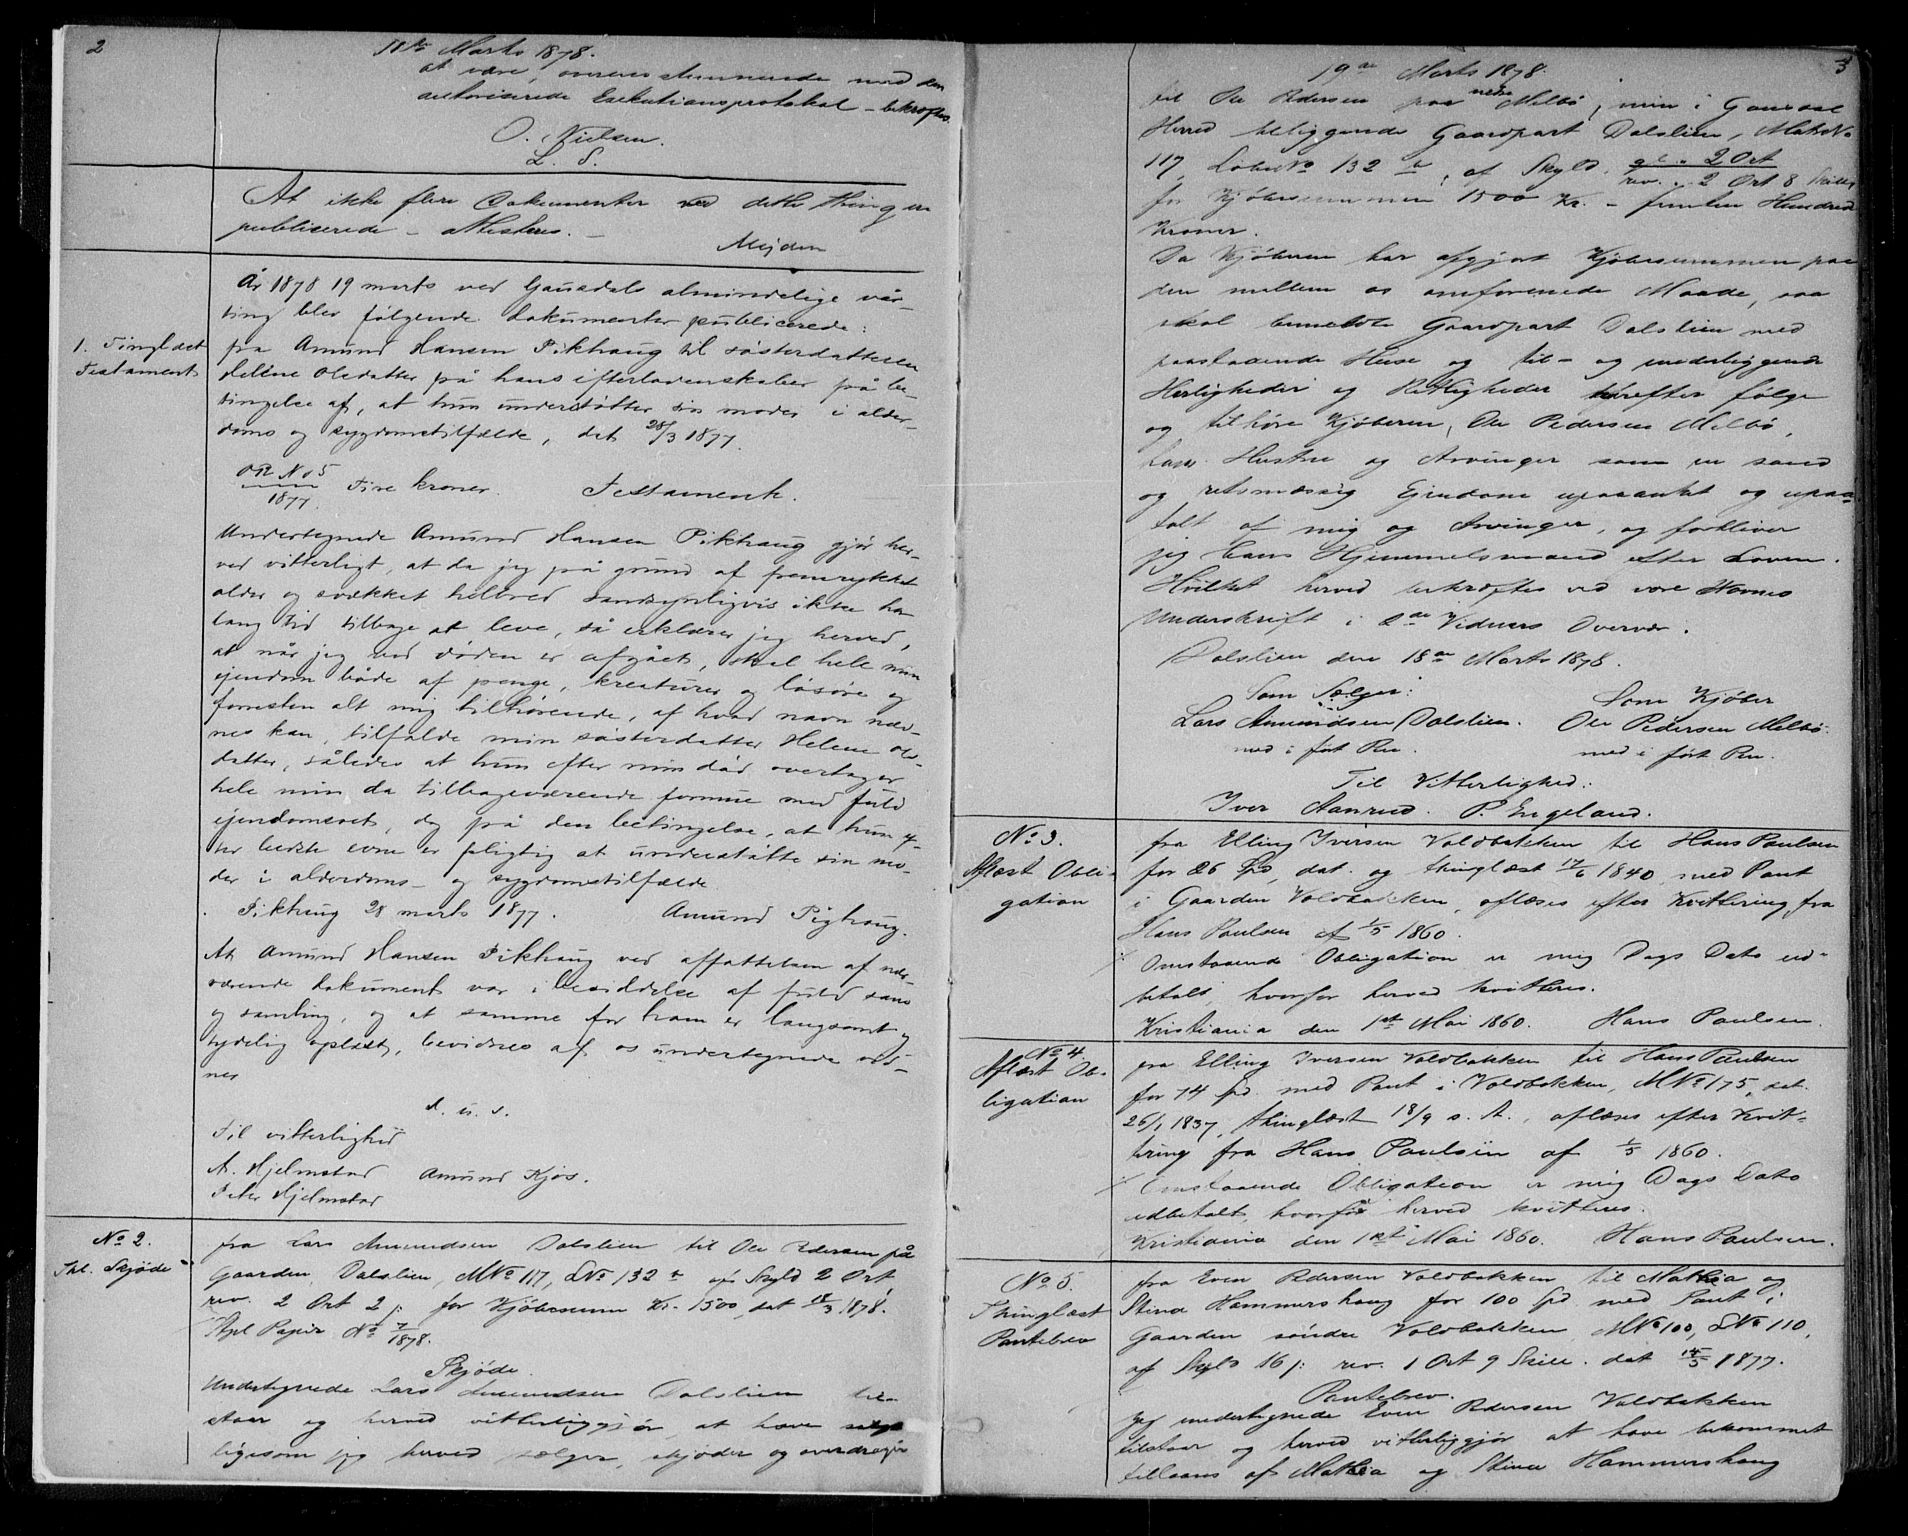 2
18de Marts 1878.
at være overensstemmende med den
autoriserede Exekutionsprotokol – bekræftes.
O. Nielsen.
L. S.
At ikke flere Dokumenter ved dette Thing er
publiserede – Attesteres. –
Mejdem
År 1878 19 marts ved Gausdals almindelige vår-
ting blev følgende dokumenter publicerede:
1. Tinglæst
Testament
fra Amund Hansen Pikhaug til søsterdatteren
Helene Olsdatter på hans efterladenskaber på be-
tingelse af, at hun understøtter sin moder i alder-
doms og sygdomstilfælde, dat 28/3 1877.
OR No 5
1877.
Fire kroner. Testament.
Undertegnede Amund Hansen Pikhaug gjør her-
ved vitterligt, at da jeg på grund af fremrykket
alder og svækket helbred sandsynligvis ikke har
lang tid tilbage at leve, så erklærer jeg herved,
at når jeg ved døden er afgået, skal hele min
ejendom både af penge, kreaturer og løsøre og
forresten alt mig tilhørende, af hvad navn næv-
nes kan, tilfalde min søsterdatter Helene Ols-
datter, således at hun efter min død overtager
hele min da tilbageværende formue med fuld
ejendomsret, dog på den betingelse, at hun ef-
ter bedste evne er pligtig at understøtte sin mo-
der i alderdoms- og sygdomstilfælde.
Pikhaug 28 marts 1877. Amund Pighaug.
At Amund Hansen Pikhaug ved affattelsen af nær-
værende dokument var i besiddelse af fuld sans
og samling, og at samme for ham er langsomt og
tydelig oplæst, bevidnes af os undertegnede vid-
ner
d. u. s.
Til vitterlighed
A. Hjelmstad Amund Kjøs.
Peter Hjelmstad
No 2.
Thl. Skjøde
fra Lars Amundsen Dalslien til Ole Pedersen på
Gaarden Dalslien, MNo 117, LNo 132 b af Skyld 2 Ort
rev. 2 Ort 2 ß for Kjøbesum Kr. 1500, dat 18/3 1878.
Stpl Papir No 7/1878.
Skjøde
Undertegnede Lars Amundsen Dalslien til-
staar og herved vitterliggjør at have solgt
ligesom jeg herved sælger, skjøder og overdrager
3
19de Marts 1878.
til Ole Pedersen paa nedre Melbö, min i Gausdal
Herred beliggende Gaardpart Dalslien, MatrNo
117, LøbeNo 132 b, af Skyld gl. 2 Ort
rev. 2 Ort 8 Skill
for Kjøbesummen 1500 Kr. – femten Hundrede
Kroner.
Da Kjøberen har afgjort Kjøbesummen paa
den mellem os omforenede Maade, saa
skal bemeldte Gaardpart Dalslien med
paastaaende Huse og til- og underliggende
Herligheder og Rettigheder herefter følge
og tilhøre Kjøberen, Ole Pedersen Melbö,
hans Hustru og Arvinger som en sand
og retsmæssig Ejendom upaaanket og upaa-
talt af mig og Arvinger, og forbliver
jeg hans Hjemmelsmand efter Loven.
Hvilket herved bekræftes ved vore Navnes
Underskrift i 2de Vidners Overvær.
Dalslien den 18de Marts 1878.
Som Sælger: Som Kjøber
Lars Amundsen Dalslien. Ole Pedersen Melbö.
med i ført Pen. med i ført Pen.
Til Vitterlighed:
Iver Aanrud. P. Engeland.
No 3.
Aflæst Obli-
gation
fra Elling Iversen Voldbakken til Hans Paulsen
for 26 Spd, dat. og thinglæst 17/6 1840 med Pant
i Gaarden Voldbakken, aflæses efter Kvittering fra
Hans Paulsen af 1/5 1860.
Omstaaende Obligation er mig Dags Dato ud-
betalt, hvorfor herved kvitteres.
Kristiania den 1st Mai 1860. Hans Paulsen.
No 4.
Aflæst Ob-
ligation
fra Elling Iversen Voldbakken til Hans Paulsen
for 74 Spd. med Pant i Voldbakken, MNo 175, dat.
26/1 1837, thinglæst 18/9 s. A., aflæses efter Kvit-
tering fra Hans Paulsen af 1/5 1860.
Omstaaende Obligation er mig Dags Dato
udbetalt, hvorfor herved kvitteres.
Kristiania den 1st Mai 1860. Hans Paulsen.
No 5.
Thinglæst
Pantebrev
fra Even Pedersen Voldbakken til Mathea og
Stina Hammershaug for 100 Spd med Pant i
Gaarden söndre Voldbakken MNo 100, LNo 110,
af Skyld 16 ß rev. 1 Ort 9 Skill. dat 14/5 1877.
Pantebrev.
Jeg undertegnede Even Pedersen Voldbakken
tilstaar og herved vitterliggjør at have bekommet
tillaans af Mathea og Stina Hammershaug